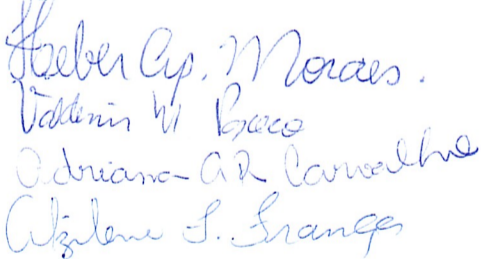 Kleber Ap. Moraes.
Valdenir M
Adriana AR Carvalho
Alzilene S. França